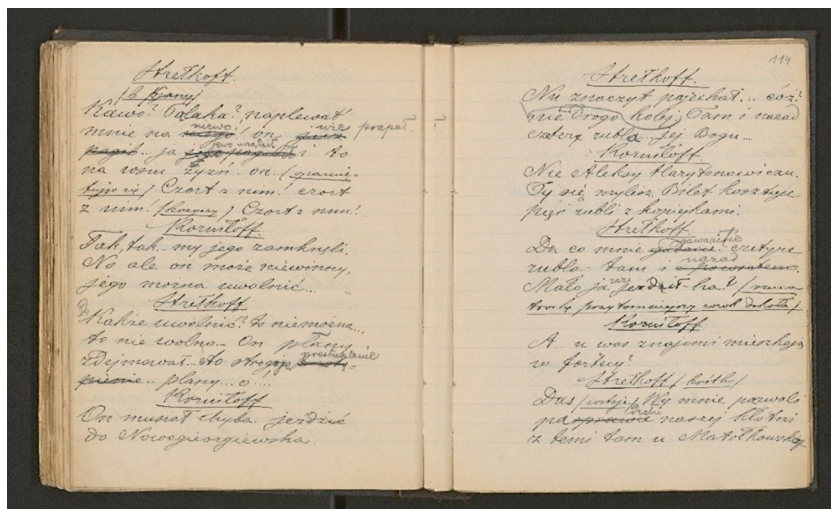 Strełkoff.
(b. pjany)
Kawo? Polaka? naplewat'
mnie na niewo! on wsie propał.
ja jewo uważał i to
na wsiu żyzń. on.. (gramie-
Czort z nim! czort
z nim! (krzyczy) Czort z nim!
Korniłoff
Tak, tak.. my jego zamknęli.
No ale on może niewinny,
jego można uwolnić...
Strełkoff
Kakże uwolnić? to niemożna...
to nie wolno.. On płany
zdejmował.. Eto strogoje prestuplenie
plany... o....
Korniłoff
On musiał chyba jeździć
do Nowogieorgiewska.
114
Strełkoff.
Nu znaczyt pojechał... cóż?
nie drogo kolej. Tam i nazad
cztery rubla. Jej Bogu...
Korniłoff
Nie Aleksy Harytonowiczu.
Ty się mylisz. Bilet kosztuje
pięć rubli z kopiejkami.
Strełkoff.
Da co mnie gawarisz czetyre
rubla tam i nazad
Mało ja raz jeździł ha!
trochę przytomniejszy wzrok dokoła)
Korniłoff
A... u was znajomi mieszkają
w fortecy?
Strełkoff (krótko)
Da s (wstaje) Wy mnie pozwoli
naszej kłótni
z temi tam u Matołkowskiej